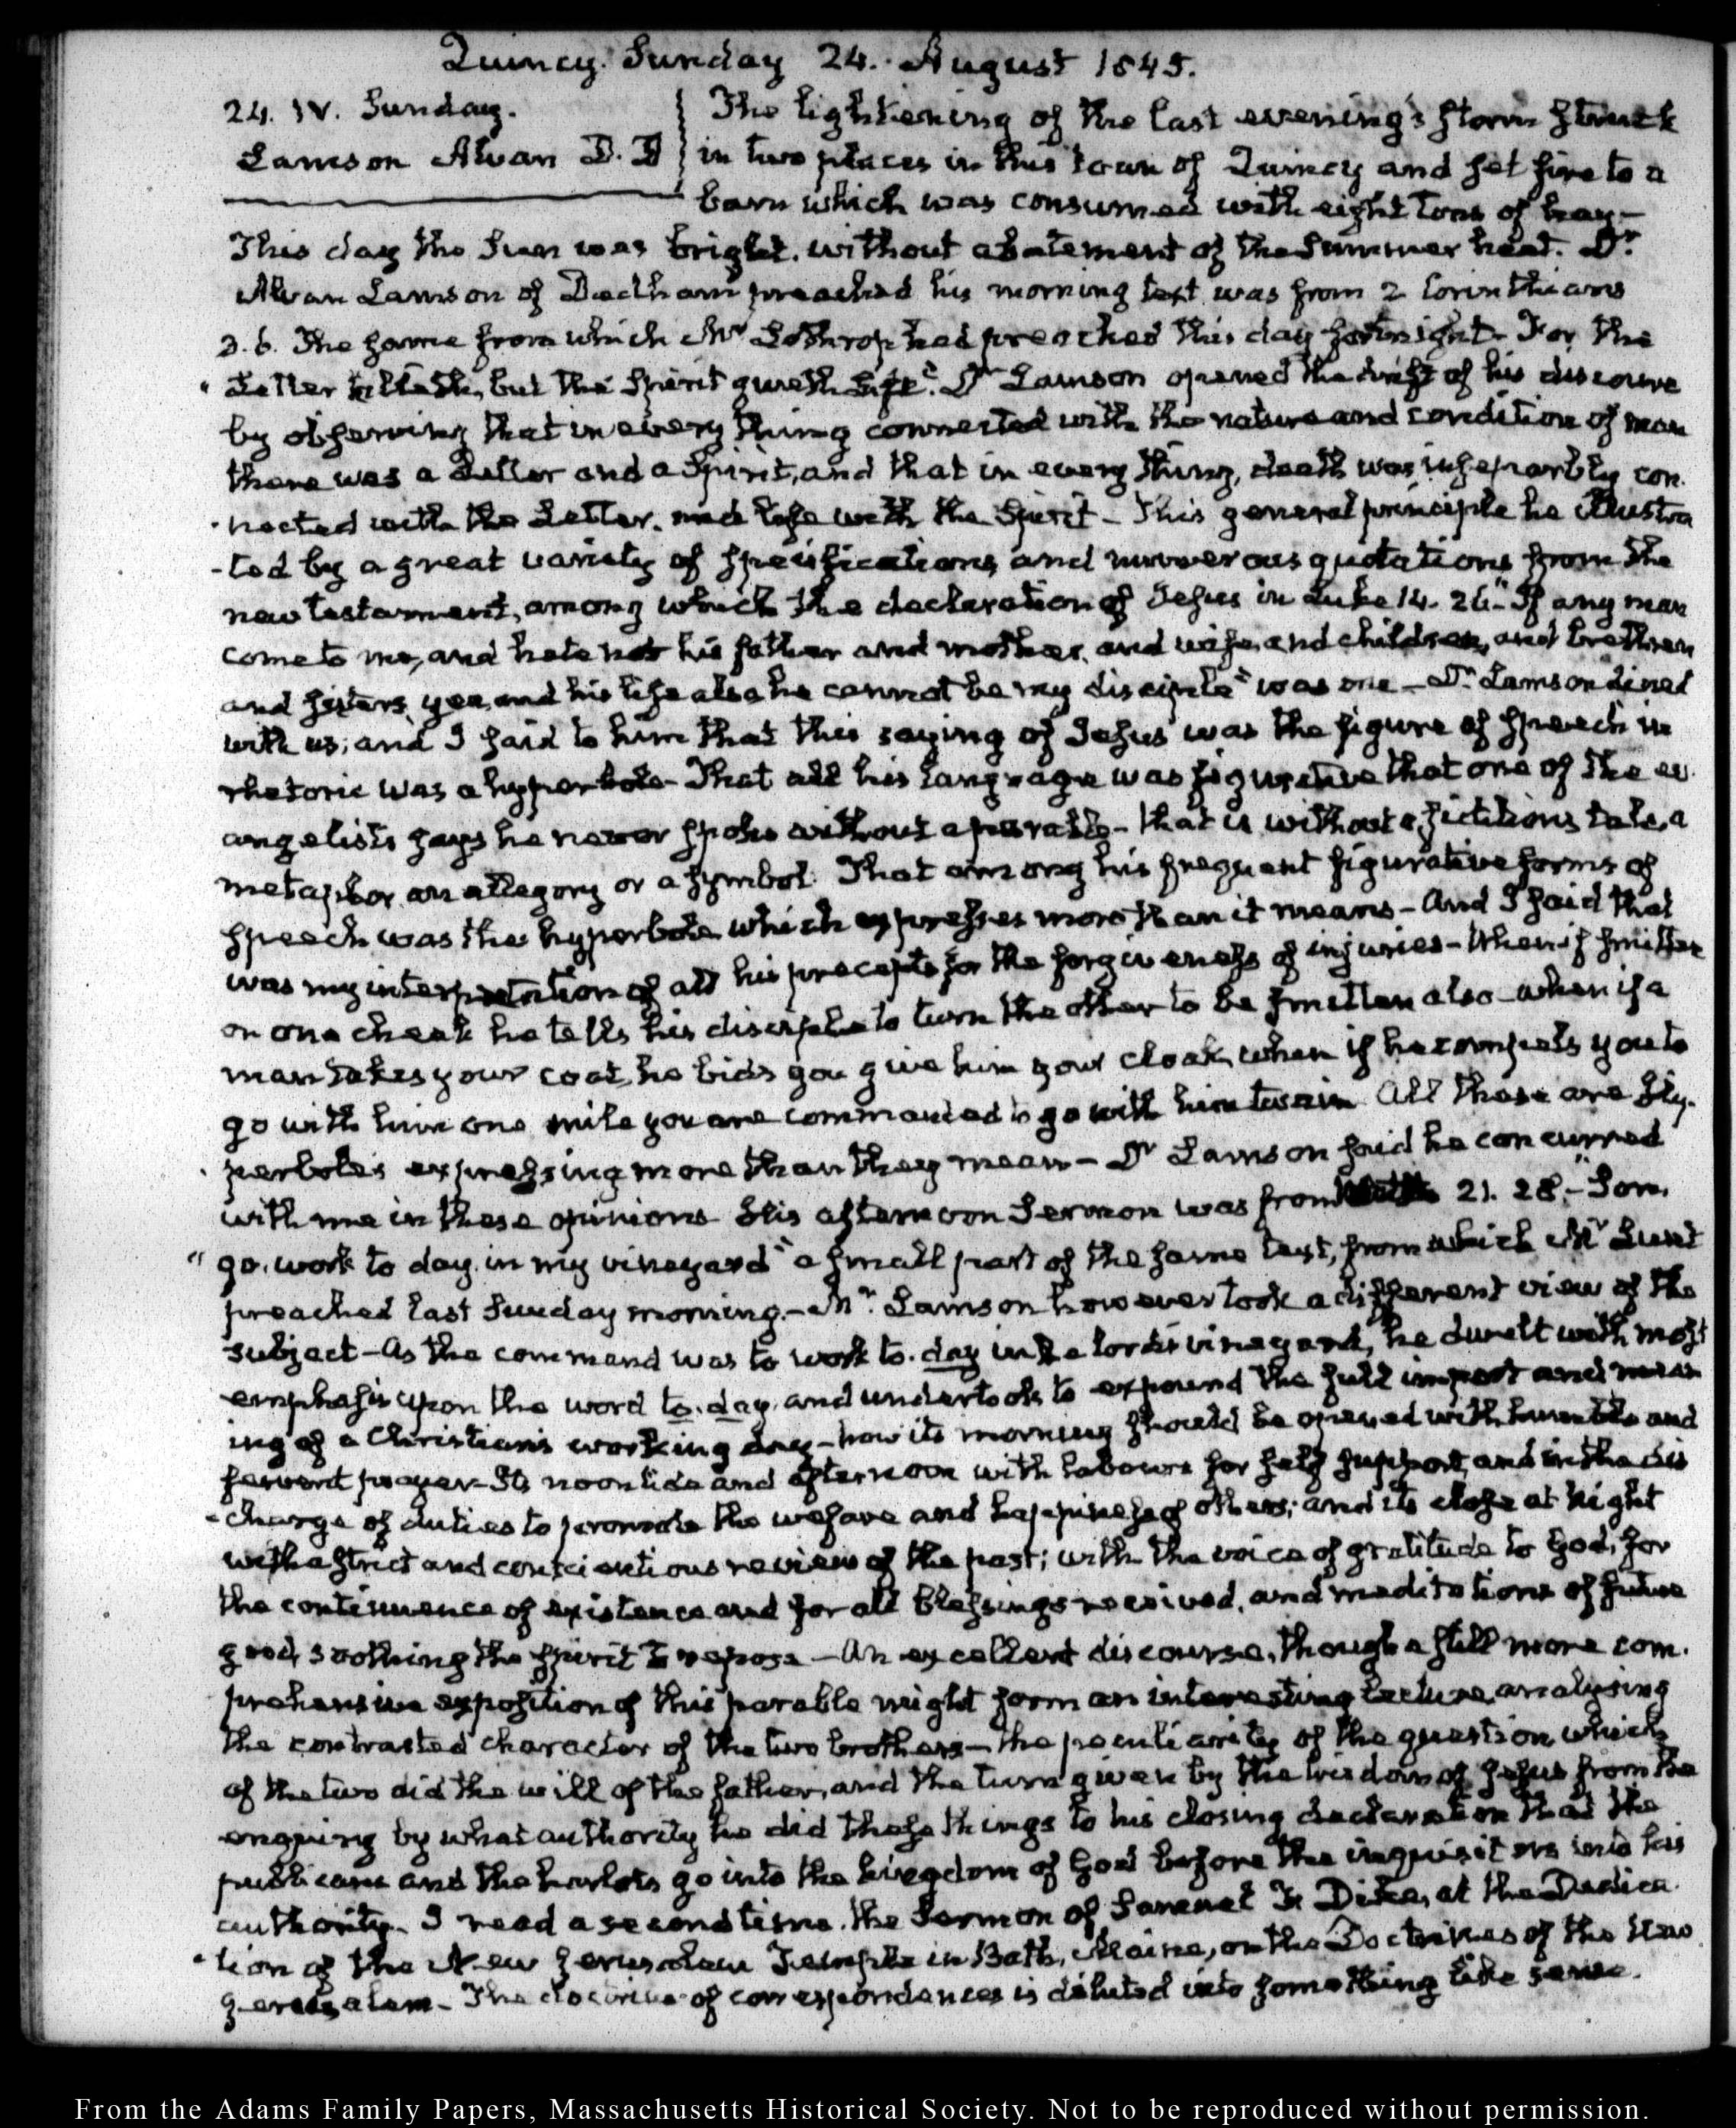 Quincy. Sunday 24. August 1845.
24. IV. Sunday.
Lamson Alvan D.D
The lightening of the last evening's storm struck
in two places in this town of Quincy and set fire to a
barn which was consumed with eight tons of hay—
This day the Sun was bright. without abatement of the Summer heat. Dr.
Alvan Lamson of Dedham preached his morning text was from 2 Corinthians
3.6. The same from which Mr Lothrop had preached this day fortnight. For the
" Letter killeth, but the Spirit giveth life". Dr Lamson opened the drift of his discourse
by observing that in every thing connected with the nature and condition of man
there was a Letter and a Spirit, and that in every thing, death was inseparably con
nected with the Letter. and life with the Spirit – This general principle he illustra
-ted by a great variety of specifications and numerous quotations from the
new testament, among which the declaration of Jesus in Luke 14. 26. "If any man
come to me, and hate not his father and mother, and wife, and children, and brethren
and sisters, yea, and his life also he cannot be my disciple" was one – Dr. Lamson dined
with us; and I said to him that this saying of Jesus was the figure of speech in
rhetoric was a hyperbole – That all his language was figurative that one of the ev
angelists says he never spoke without a parable – that is without a fictitious tale, a
metaphor, an allegory or a symbol. That among his frequent figurative forms of
speech was the hyperbole which expresses more than it means – And I said that
was my interpretation of all his precepts for the forgiveness of injuries – When if smitten
on one cheek he tells his disciple to turn the other to be smitten also – when if a
man takes your coat, he bids you give him your cloak, when if he compels you to
go with him one mile you are commanded to go with him twain All these are Hy.
perboles expressing more than they mean – Dr Lamson said he concurred
with me in these opinions His afternoon Sermon was from 21. 28. – "Son,
" go, work to day in my vineyard" a small part of the same text, from which Mr Lunt
preached last Sunday morning. – Mr. Lamson however took a different view of the
subject – As the command was to work to. day in the lords vineyard, he dwelt with most
emphasis upon the word to. day, and undertook to expound the full import and mean
ing of a Christian's working day – how its morning should be opened with humble and
fervent prayer – Its noontide and afternoon with labours for self support, and in the dis
-charge of duties to promote the welfare and happiness of others; and its close at night
with a strict and conscientious review of the past; with the voice of gratitude to God, for
the continuence of existence and for all blessings received, and meditations of future
good, soothing the spirit to repose – An excellent discourse, though a still more com.
prehensive exposition of this parable might form an interesting lecture, analysing
the contrasted character of the two brothers – the peculiarity of the question which
of the two did the will of the father, and the turn given by the wisdom of Jesus from the
enquiry by what authority he did these things to his closing declaration that the
publicans and the harlots go into the kingdom of God before the inquisitors into his
authority. I read a second time. the Sermon of Samuel F. Dike, at the Dedica
tion of the New Jerusalem Temple in Bath, Maine, on the Doctrines of the New
Jerusalem – The doctrine of correspondences is diluted into something like sense.
From the Adams Family Papers, Massachusetts Historical Society. Not to be reproduced without permission.